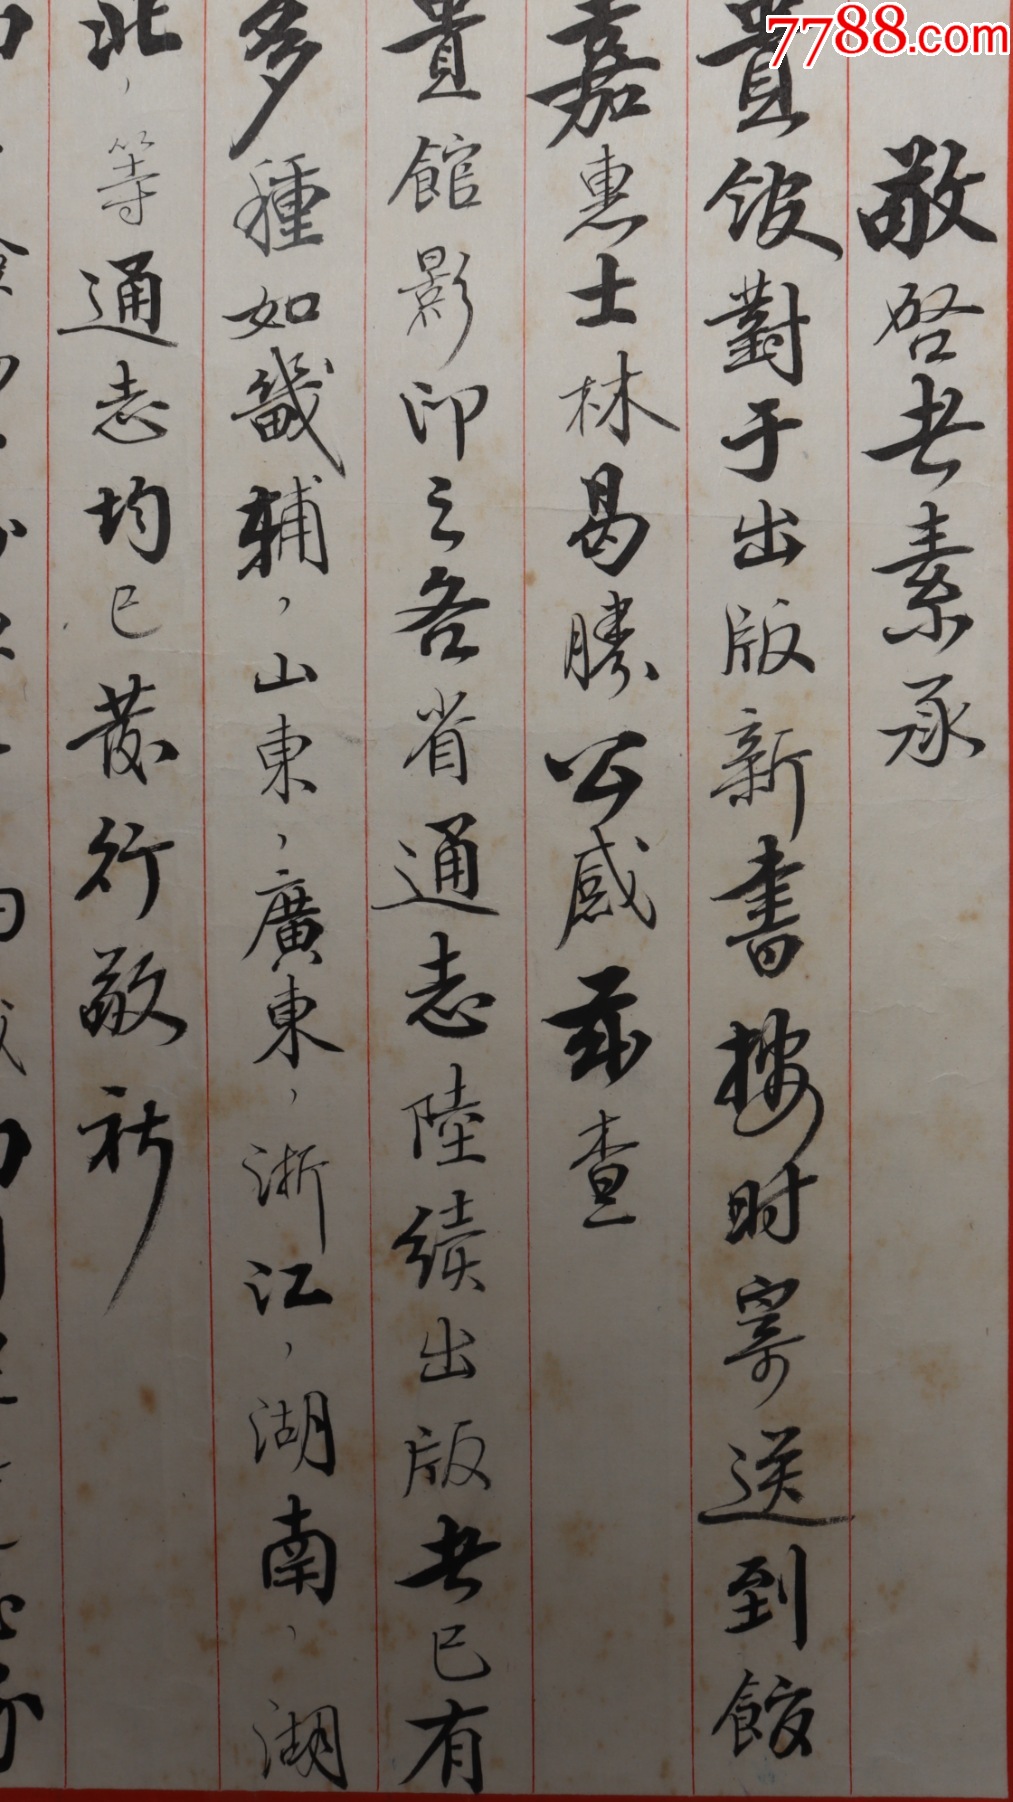 7788.com
敬啓者素承
貴館對于出版新書按时寄送到館
嘉惠士林曷勝公感兹查
貴館影印之各省通志陸續出版者已有
多種如畿輔，山東，廣東，浙江，湖南，湖
北，等通志均已發行敬祈